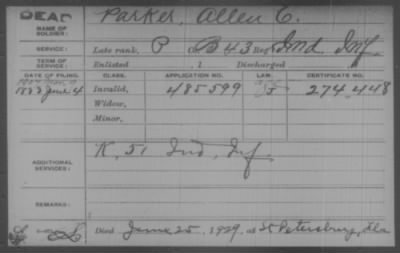 DEAD
NAME OF SOLDIER: Parker, Allen C.
SERVICE: Late rank, P Co. B 43 Reg't Ind Inf
TERM OF SERVICE: Enlisted , 1 Discharged
DATE OF FILING. CLASS. APPLICATION NO. LAW. CERTIFICATE NO.
1883 June 4 Invalid, 485599 J 274,448
Widow,
Minor,
ADDITIONAL SERVICES: K, 51 Ind, Inf.
REMARKS:
Died June 25, 1929, at St Petersburg, Fla